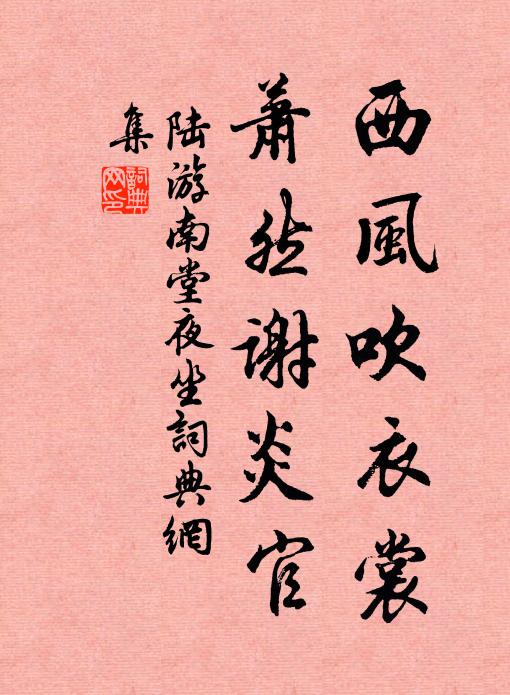 西風吹衣裳
蕭然謝炎官
陸游南堂夜坐詞典網
集
詞典網印